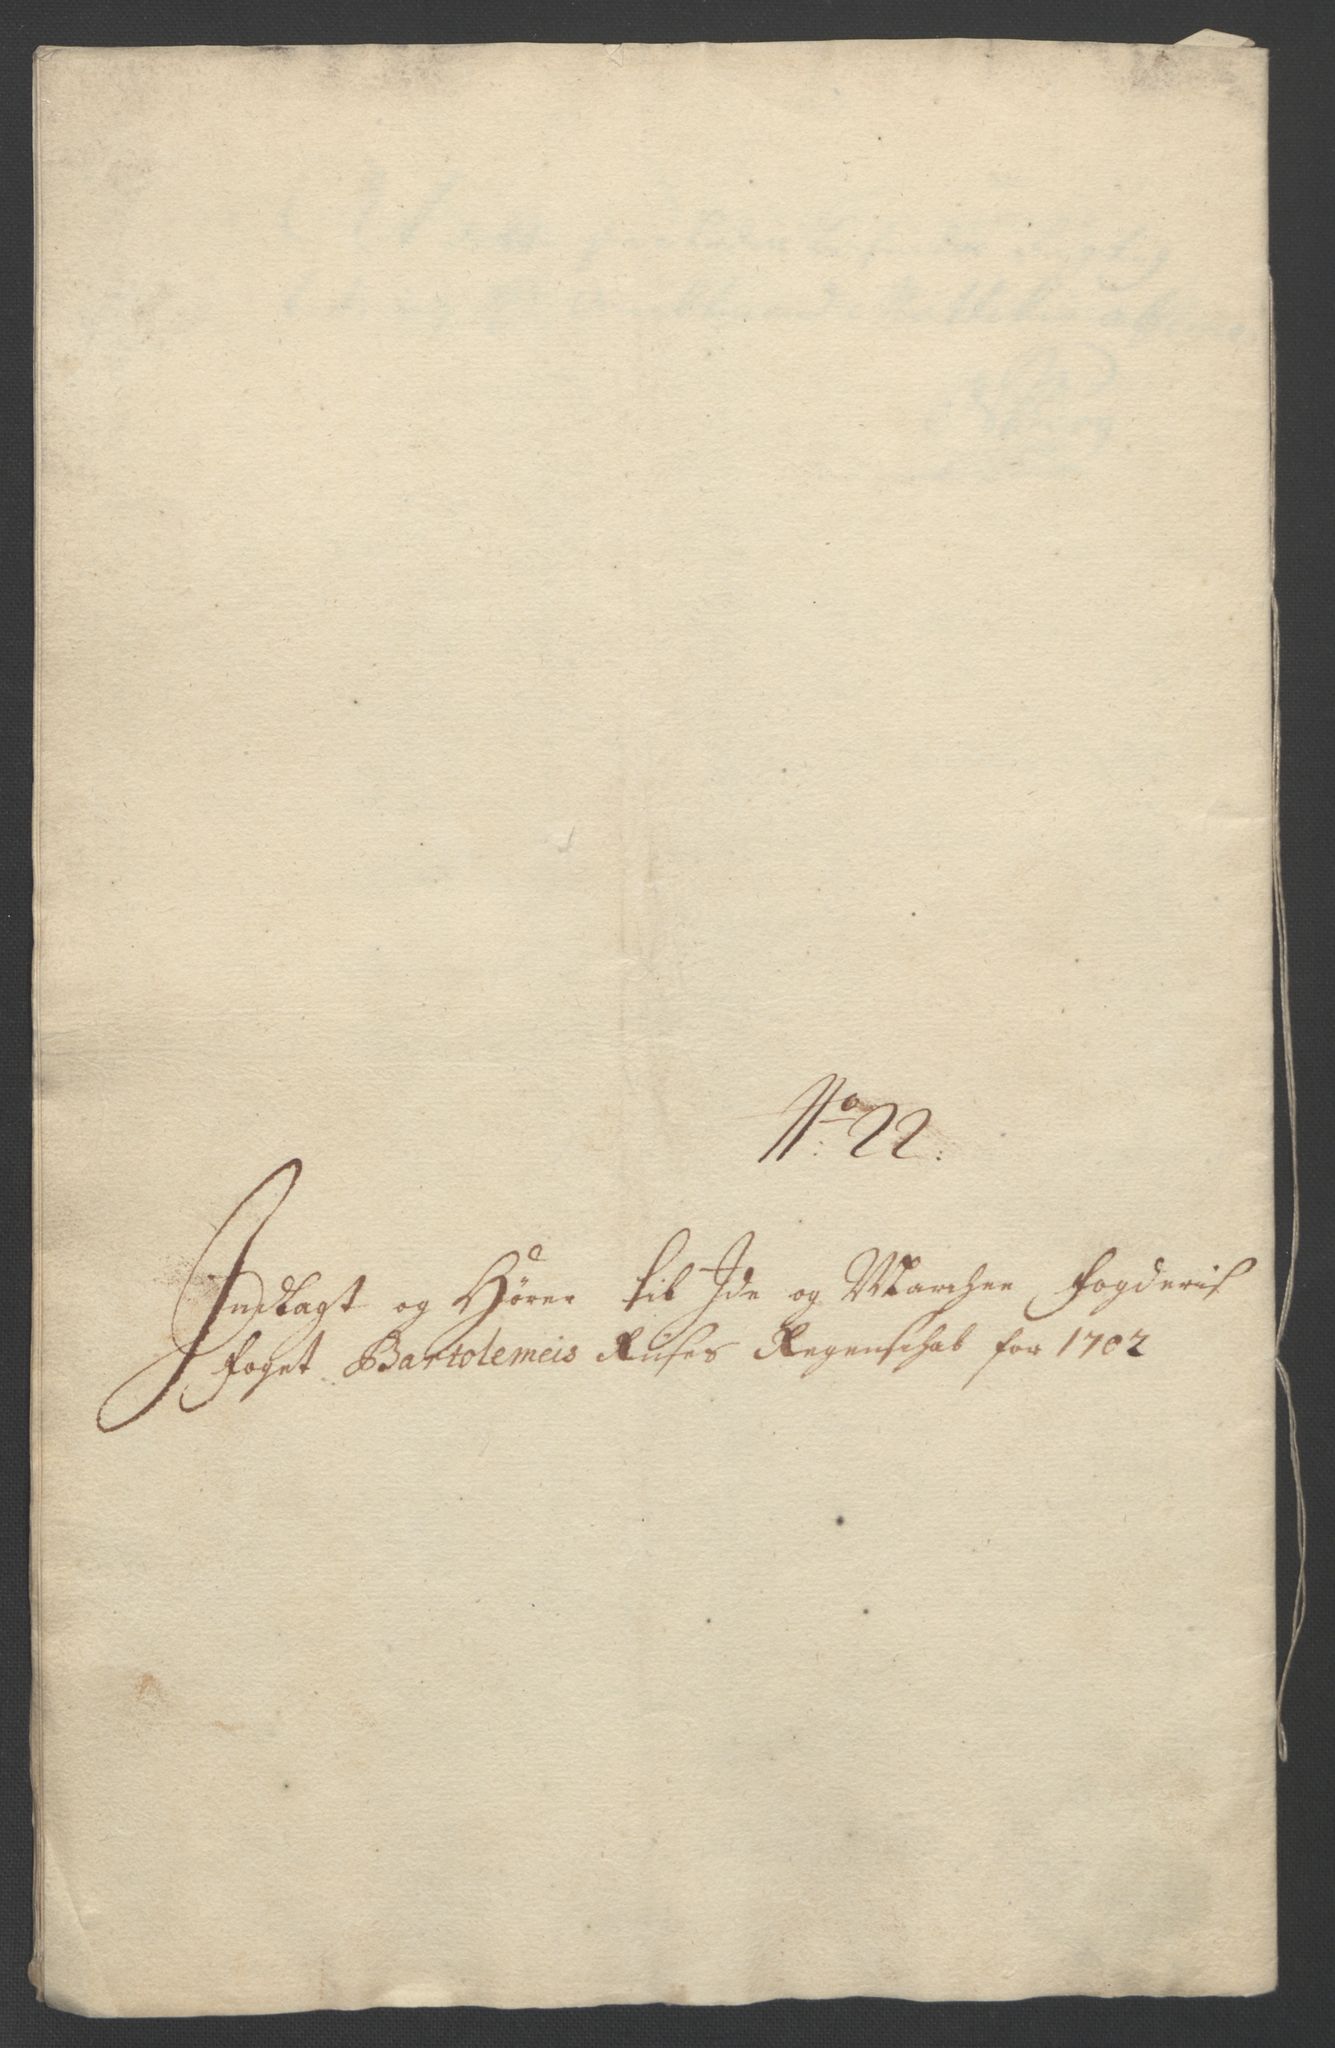 No 22.
Indlagt og Hörer til Ide og Marchen Fogderis
Foget Bartolemeis Ruses Regenschab for 1702